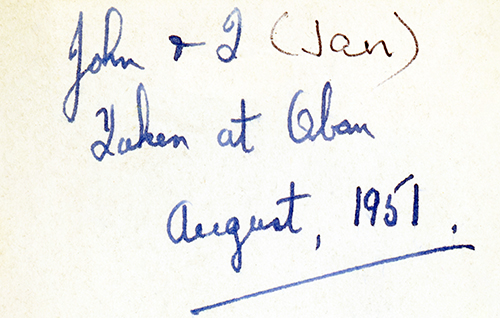 John & I (Jan)
Taken at Oban
August, 1951.